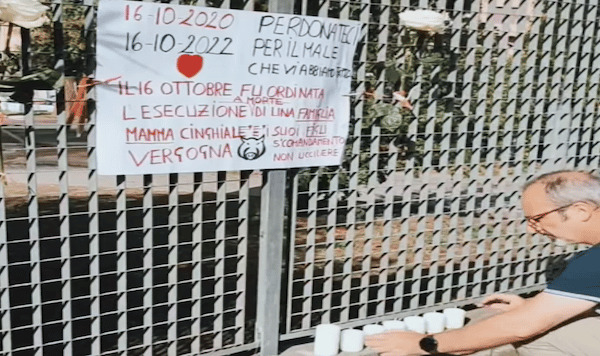 16-10-2020
16-10-2022
PERDONATECI
PER IL MALE
CHE VI ABBIAMO
IL 16 OTTOBRE FU ORDINATA
L'ESECUZIONE DI UNA FAMIGLIA
A MORTE
MAMMA CINGHIALE E I
SUOI FIGLI
VERGOGNA
5°COMANDAMENTO
NON UCCIDERE